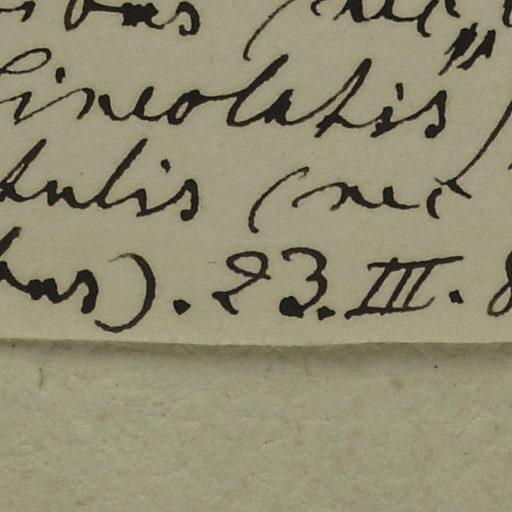 (nec
lineolatis")
tulis (nec
bus). 23. III. 8